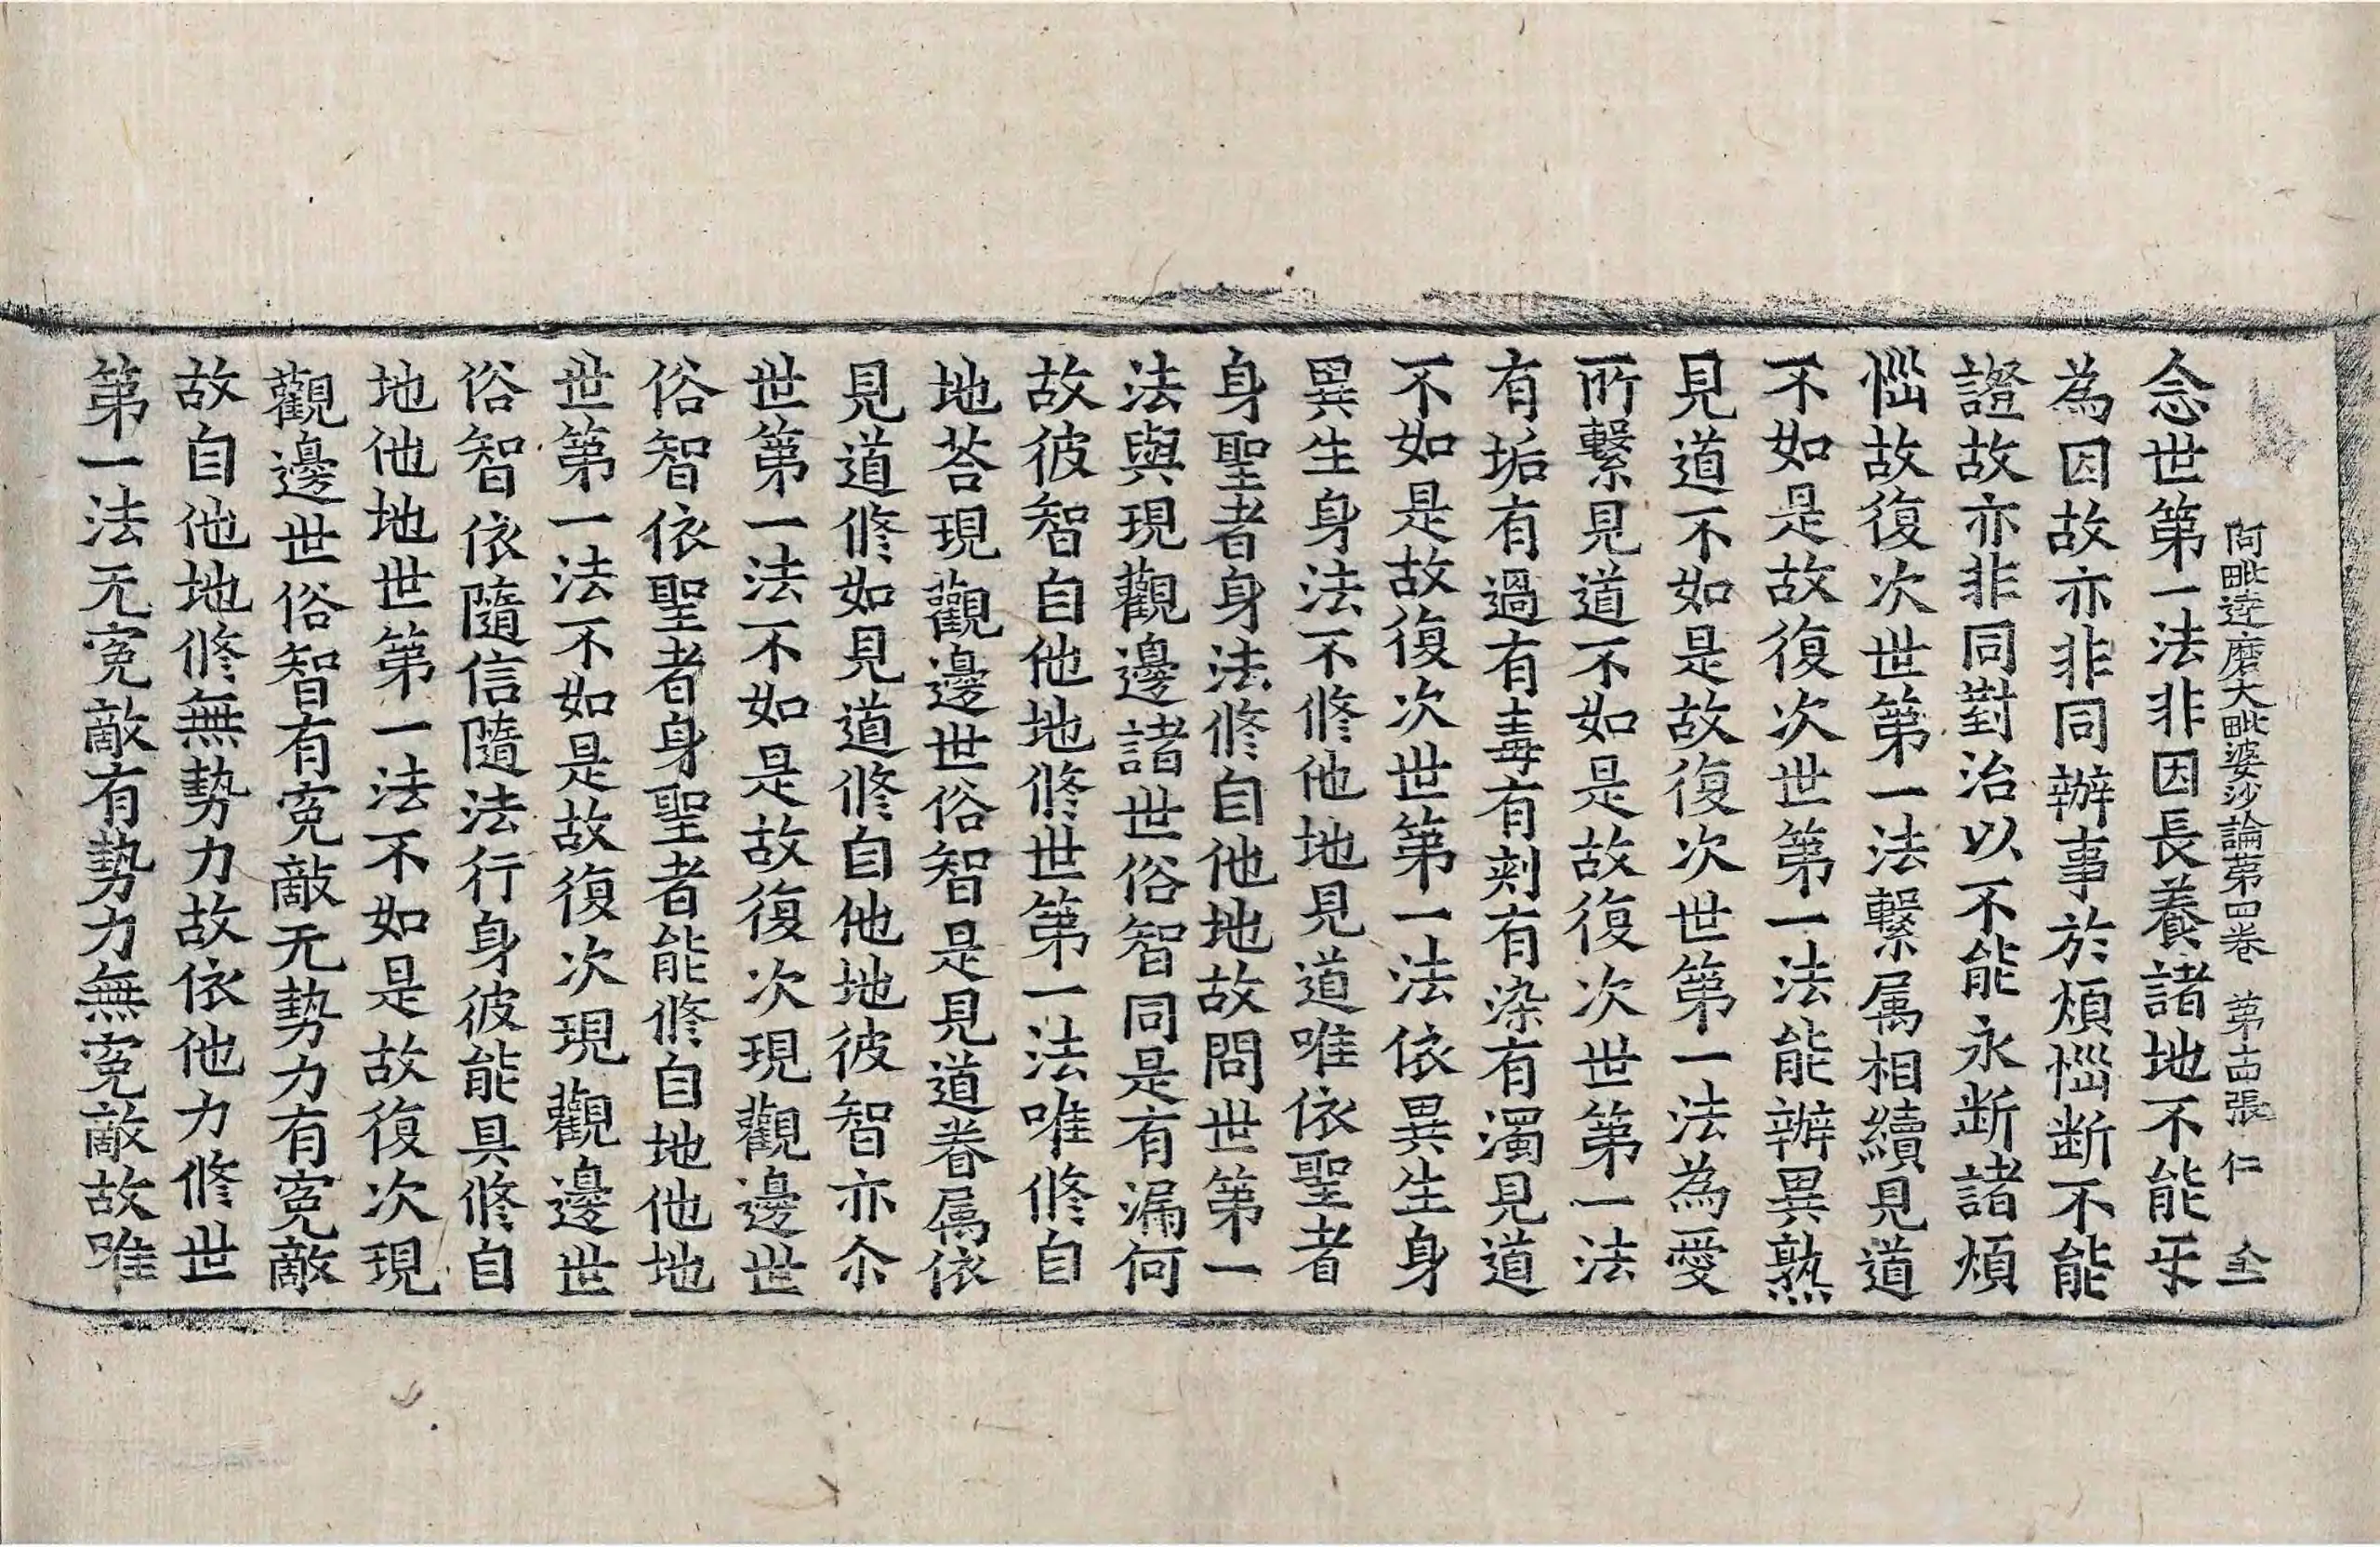 阿毗達磨大毗婆沙論第四卷 第十四張 仁 仝
念世第一法非因長養諸地不能㸦
為因故亦非同辦事於煩惱斷不能
證故亦非同對治以不能永斷諸煩
惱故復次世第一法繫属相續見道
不如是故復次世第一法能辦異熟
見道不如是故復次世第一法為愛
所繫見道不如是故復次世第一法
有垢有過有毒有刾有染有濁見道
不如是故復次世第一法依異生身
異生身法不修他地見道唯依聖者
身聖者身法修自他地故問世第一
法與現觀邊諸世俗智同是有漏何
故彼智自他地修世第一法唯修自
地荅現觀邊世俗智是見道眷属依
見道修如見道修自他地彼智亦尒
世第一法不如是故復次現觀邊世
俗智依聖者身聖者能修自地他地
世第一法不如是故復次現觀邊世
俗智依隨信隨法行身彼能具修自
地他地世第一法不如是故復次現
觀邊世俗智有寃敵无勢力有寃敵
故自他地修無勢力故依他力修世
第一法无寃敵有勢力無寃敵故唯